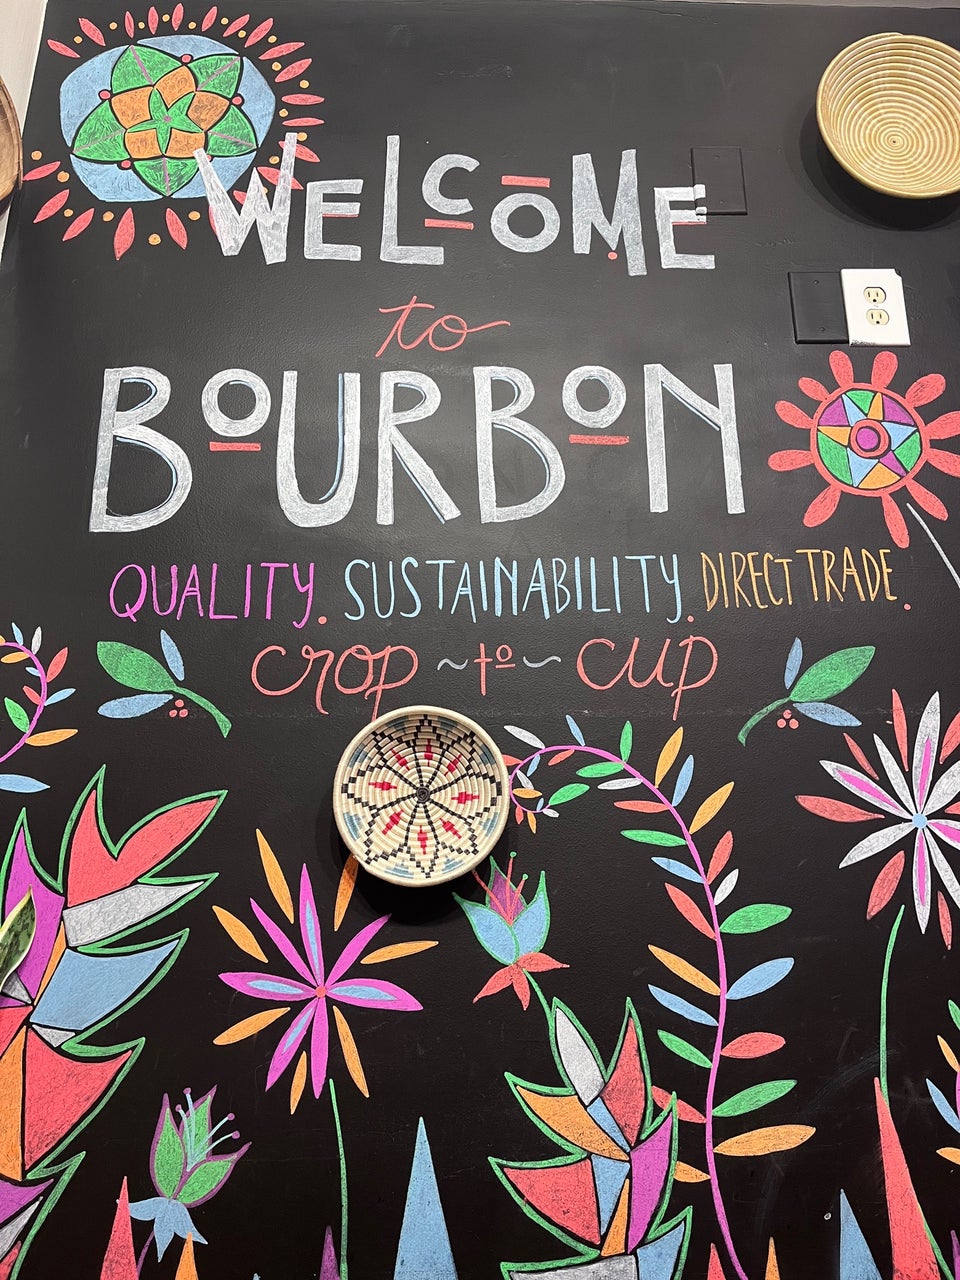 WELCOME
to
BOURBON
QUALITY. SUSTAINABILITY. DIRECT TRADE.
crop ~to~ cup